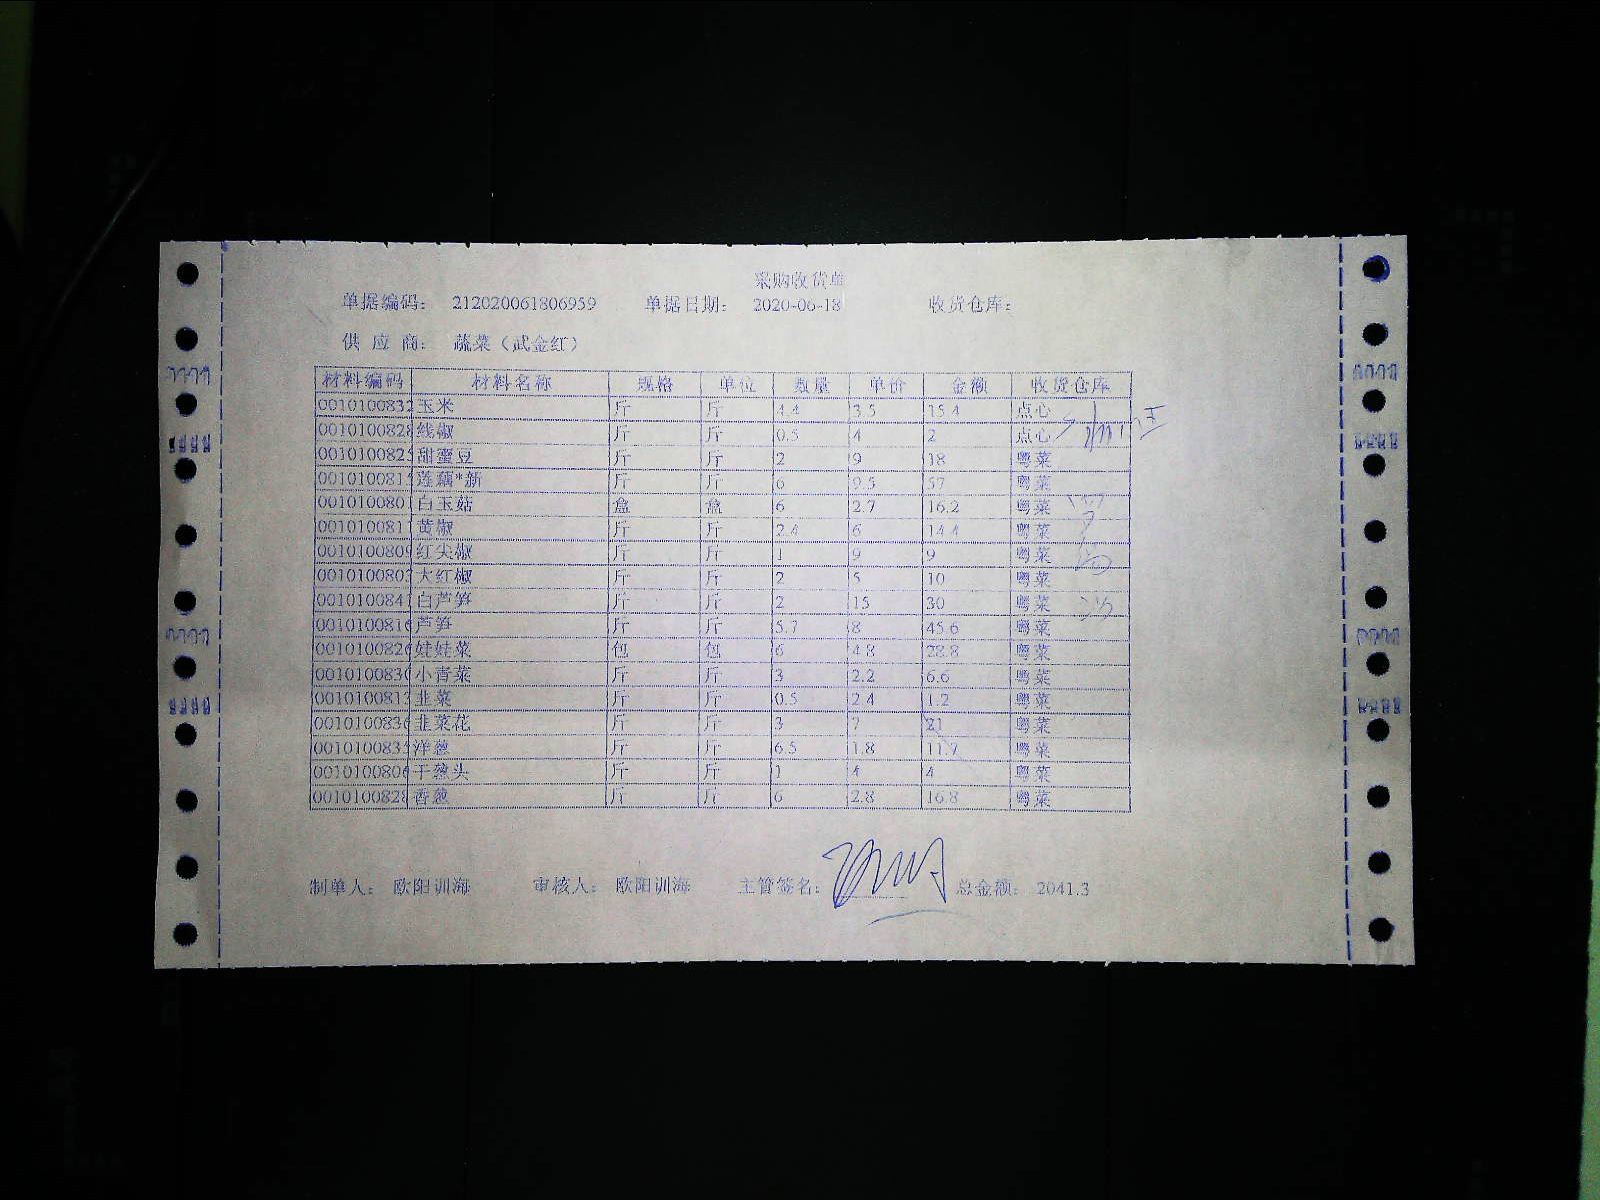 采购收货单
单据编码: 212020061806959 单据日期: 2020-06-18 收货仓库:
供 应 商: 蔬菜（武金红）
材料编码 材料名称 规格 单位 数量 单价 金额 收货仓库
0010100832 玉米 斤 斤 4.4 3.5 15.4 点心
001010082 线椒 斤 斤 0.5 4 2 点心
001010082 甜蜜豆 斤 斤 2 9 18 粤菜
001010081 莲藕*新 斤 斤 6 9.5 57 粤菜
001010080 白玉菇 盒 盒 6 2.7 16.2 粤菜
001010081 黄椒 斤 斤 2.4 6 14.4 粤菜
001010080 红尖椒 斤 斤 1 9 9 粤菜
001010080 大红椒 斤 斤 2 5 10 粤菜
001010084 白芦笋 斤 斤 2 15 30 粤菜
001010081 芦笋 斤 斤 5.7 8 45.6 粤菜
001010082 娃娃菜 包 包 6 4.8 28.8 粤菜
001010083 小青菜 斤 斤 3 2.2 6.6 粤菜
001010081 韭菜 斤 斤 0.5 2.4 1.2 粤菜
001010083 韭菜花 斤 斤 3 7 21 粤菜
001010083 洋葱 斤 斤 6.5 1.8 11.7 粤菜
001010080 干葱头 斤 斤 1 4 4 粤菜
001010082 香葱 斤 斤 6 2.8 16.8 粤菜
制单人: 欧阳训海 审核人: 欧阳训海 主管签名: 总金额: 2041.3